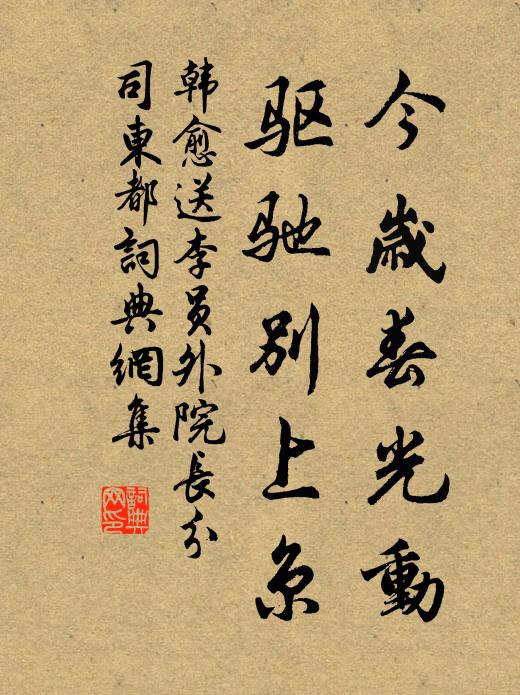 今歲春光動
驱驰别上京
韩愈送李员外院長分
司東都詞典網集
詞典
网印